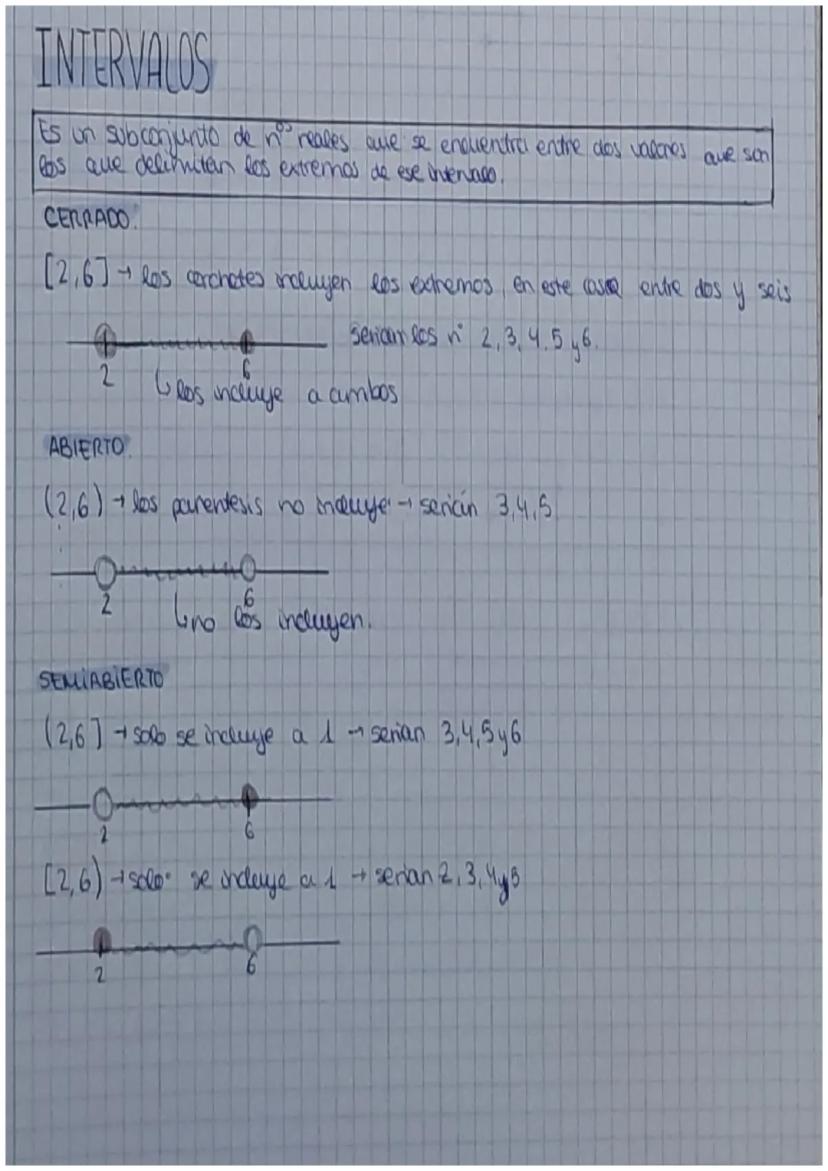 INTERVALOS
Es un subconjunto de nºs reales que se encuentra entre dos valores que son
los que delimitan los extremos de ese intervalo.
CERRADO:
[2,6] → los corchetes incluyen los extremos, en este caso entre dos y seis
serian los nº 2, 3, 4, 5 y 6.
2 6
↳ los incluye a ambos
ABIERTO:
(2,6) → los parentesis no incluye → serían 3,4,5
2 6
↳ no los incluyen.
SEMIABIERTO
(2,6] → solo se incluye a 1 → serian 3,4,5 y 6
2 6
[2,6) → solo se incluye a 1 → serian 2, 3, 4 y 5
2 6